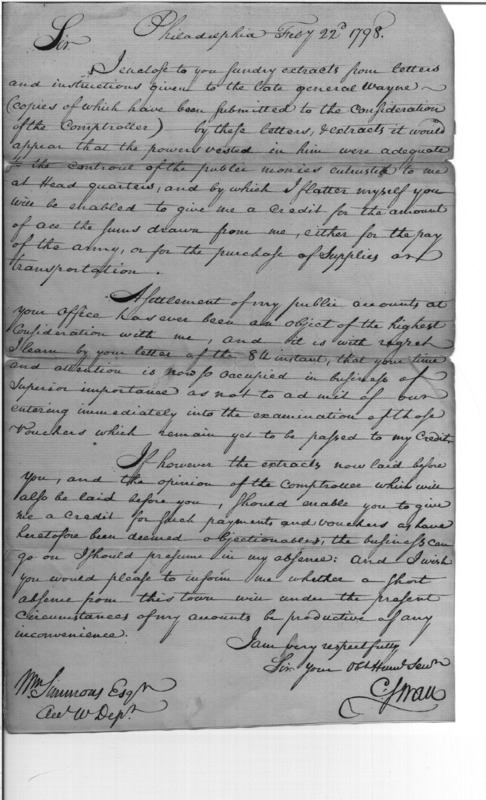 Philadelphia Feby 22d 1798.
Sir
I enclose to you sundry extracts from letters
and instructions given to the late general Wayne ~
(copies of which have been submitted to the Consideration
of the Comptroller) by these letters, & extracts it would
appear that the powers vested in him were adequate
to the controul of the public monies entrusted to me
at Head quarters, and by which I flatter myself you
will be enabled to give me a Credit for the amount
of all the Sums drawn from me, either for the pay
of the army, or for the purchase of Supplies or
transportation.
A settlement of my public accounts at
your office has ever been an object of the highest
Consideration with me, and it is with regret
I learn by your letter of the 8th instant, that your time
and attention is now so occupied in business of
Superior importance as not to admit of our
entering immediately into the examination of those
Vouchers which remain yet to be passed to my Credit.
If however the extracts now laid before
you, and the opinion of the Comptroller which will
also be laid before you, Should enable you to give
me a Credit for such payments and vouchers as have
heretofore been deemed objectionable, the business can
go on I should presume in my absence: and I wish
you would please to inform me whether a short
absence from this town will under the present
Circumstances of my accounts be productive of any
inconvenience.
I am very respectfully
Sir your Obt Huml Servt
C. Swan
Wm Simmons Esqr
Acct W Dept.